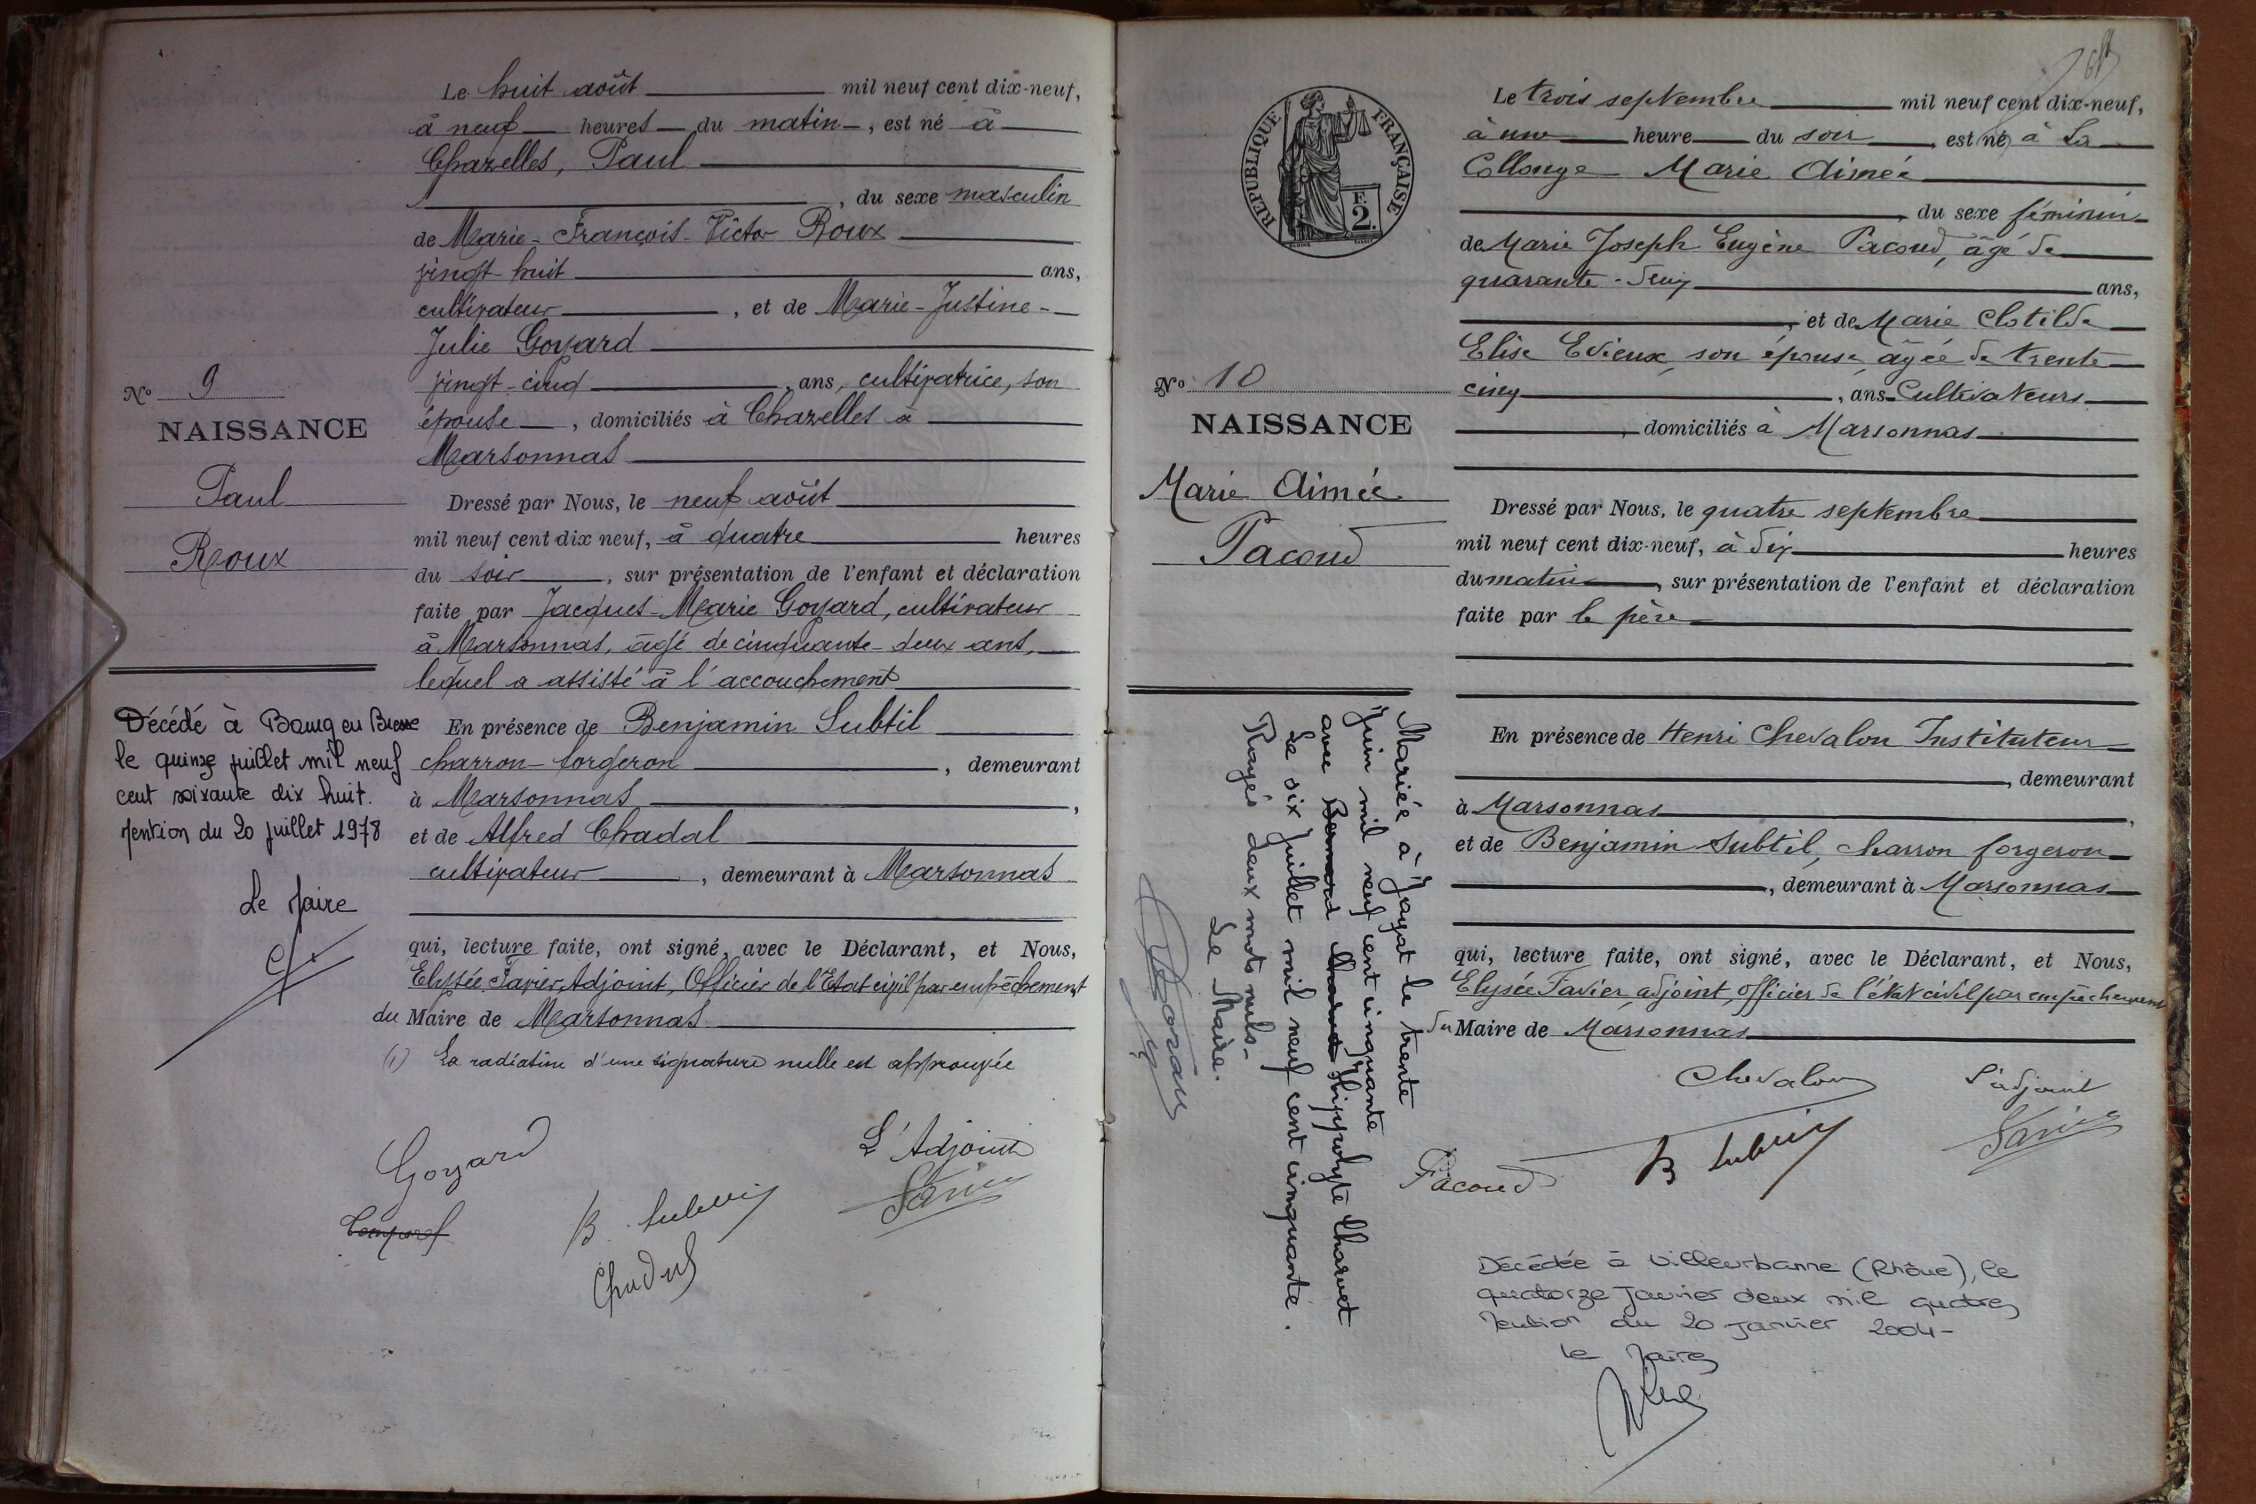 Le huit août mil neuf cent dix-neuf,
à neuf heures du matin, est né à
Chazelles, Paul
, du sexe masculin
de Marie-François-Victor Roux
vingt-huit ans,
cultivateur, et de Marie-Justine-
Julie Goyard
vingt-cinq, ans, cultivatrice, son
épouse, domiciliés à Chazelles à
Marsonnas
No 9
NAISSANCE
Paul
Roux
Dressé par Nous, le neuf août
mil neuf cent dix neuf, à quatre heures
du soir, sur présentation de l'enfant et déclaration
faite par Jacques-Marie Goyard, cultivateur
à Marsonnas, âgé de cinquante-deux ans,
lequel a assisté à l'accouchement
En présence de Benjamin Subtil
charron-forgeron, demeurant
à Marsonnas,
et de Alfred Chadal
cultivateur, demeurant à Marsonnas
qui, lecture faite, ont signé, avec le Déclarant, et Nous,
Elysée Favier, Adjoint, Officier de l'Etat civil par empêchement
du Maire de Marsonnas
(1) La radiation d'une signature nulle est approuvée
Goyard
B. Subtil
Chadal
L'Adjoint
Favier
Décédé à Bourg en Bresse
le quinze juillet mil neuf
cent soixante dix huit.
Mention du 20 juillet 1978
Le Maire
REPUBLIQUE FRANÇAISE
F.
2.
Le trois septembre mil neuf cent dix-neuf,
à une heure du soir, est né à La
Collonge Marie Aimée
, du sexe féminin
de Marie Joseph Eugène Pacoud, âgé de
quarante-deux ans,
, et de Marie Clotilde
Elise Evieux, son épouse, âgée de trente
cinq, ans Cultivateurs
, domiciliés à Marsonnas
No 10
NAISSANCE
Marie Aimée
Pacoud
Dressé par Nous, le quatre septembre
mil neuf cent dix-neuf, à dix heures
du matin, sur présentation de l'enfant et déclaration
faite par le père
En présence de Henri Chevalon Instituteur
, demeurant
à Marsonnas,
et de Benjamin Subtil, charron forgeron
, demeurant à Marsonnas
qui, lecture faite, ont signé, avec le Déclarant, et Nous,
Elysée Favier, adjoint, officier de l'état civil par empêchement
du Maire de Marsonnas
Chevalon
L'adjoint
Favier
Pacoud
B Subtil
Mariée à Jayat le trente
Juin mil neuf cent cinquante
avec Hippolyte Charvet
Le six Juillet mil neuf cent cinquante.
Rayés deux mots nuls.
Le Maire.
Décédée à Villeurbanne (Rhône), le
quatorze Janvier deux mil quatre
Mention du 20 Janvier 2004-
Le Maire